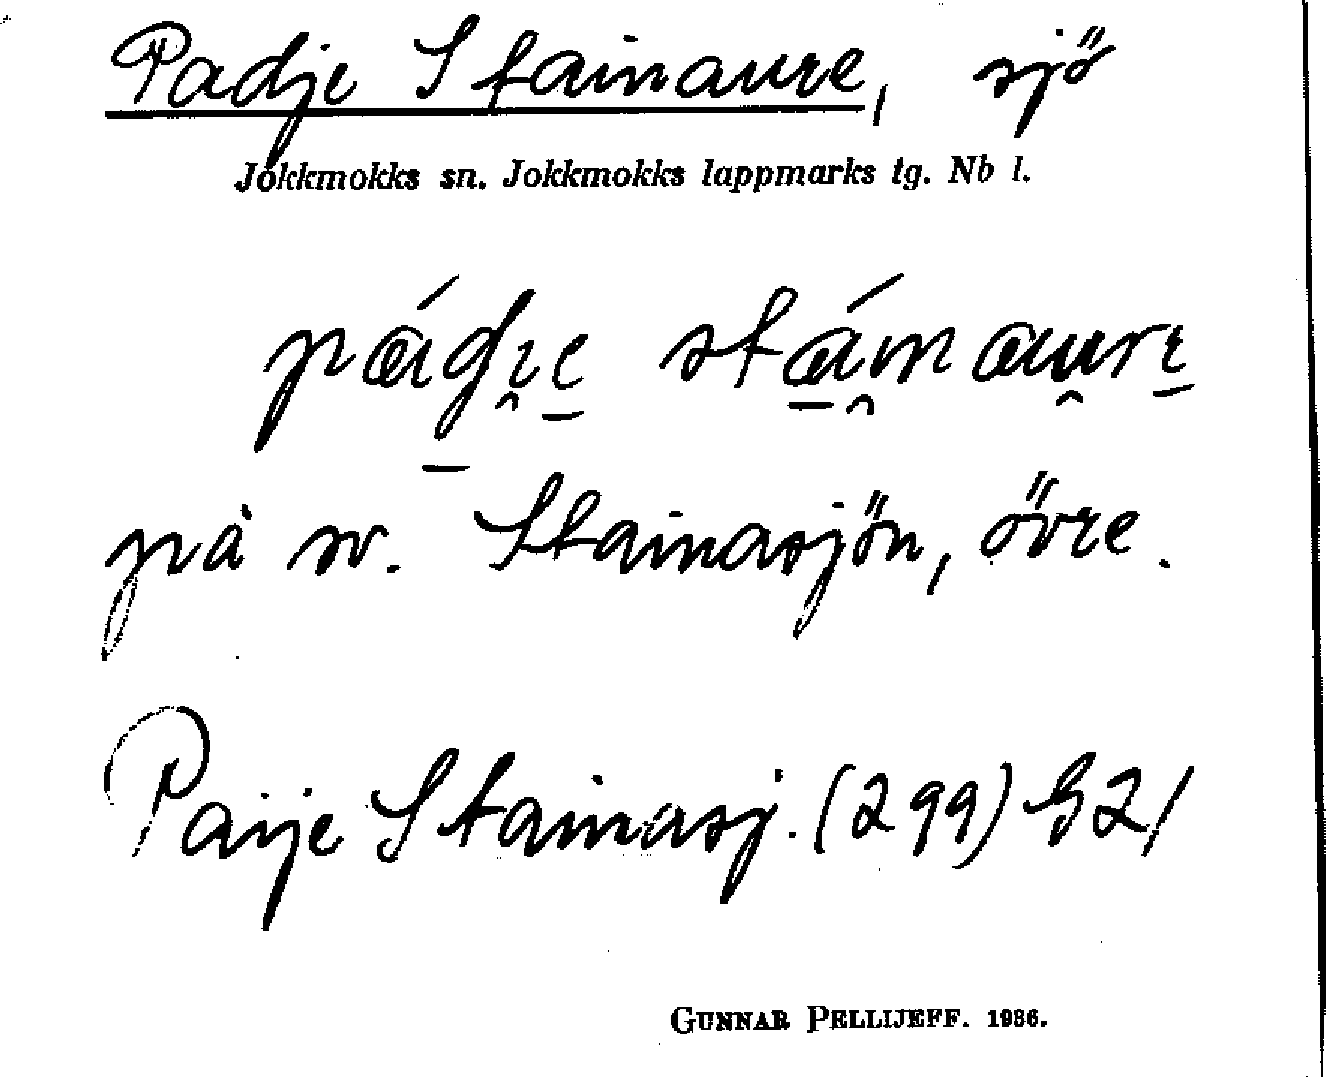 Padje Stainaure, sjö
Jokkmokks sn. Jokkmokks lappmarks tg. Nb l.
på sv. Stainasjön, övre.
Paije Stainasj. (299) G21
GUNNAR PELLIJEFF. 1936.